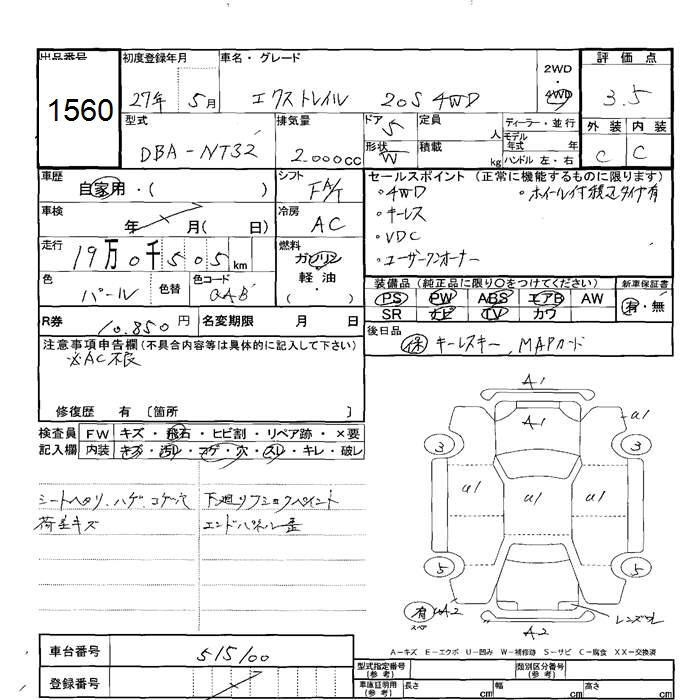 出品番号 初度登録年月 車名・グレード 2WD 評価点
1560 27年 5月 エクストレイル 20S 4WD 4WD 3.5
型式 排気量 ドア 5 定員 人 ディーラー・並行 外装 内装
DBA-NT32 2.000cc 形状 W 積載 kg モデル年式 年 ハンドル 左・右 C C
車歴 自家用・( ) シフト FA/T セールスポイント (正常に機能するものに限ります)
・4WD ・ホイール付
車検 年 月( 日) 冷房 AC ・キーレス
・VDC
走行 19万0千505km 燃料 ガソリン ・ユーザーワンオーナー
色 パール 色替 色コード QAB 軽油・( ) 装備品(純正品に限り○をつけてください) 新車保証書
PS PW ABS エアB AW 有・無
R券 10.850円 名変期限 月 日 SR ナビ TV カワ
注意事項申告欄(不具合内容等は具体的に記入して下さい) 後日品
※AC不良 保 キーレスキー, MAPカード
修復歴 有 〔箇所 〕
検査員 FW キズ・飛石・ヒビ割・リペア跡・×要
記入欄 内装 キズ・汚レ・コゲ・穴・スレ・キレ・破レ
シートヘタリ.ハゲ.コゲ穴 下廻リフショクペイント
荷室キズ エンドパネル歪
A1
A1 a1
3 3
a1 a1 a1
5 5
有 スペ A2 レンズワレ
A2
A-キズ E-エクボ U-凹み W-補修跡 S-サビ C-腐食 XX-交換済
車台番号 515100 型式指定番号(参考) 類別区分番号(参考)
登録番号 車庫証明用(参考) 長さ cm 幅 cm 高さ cm